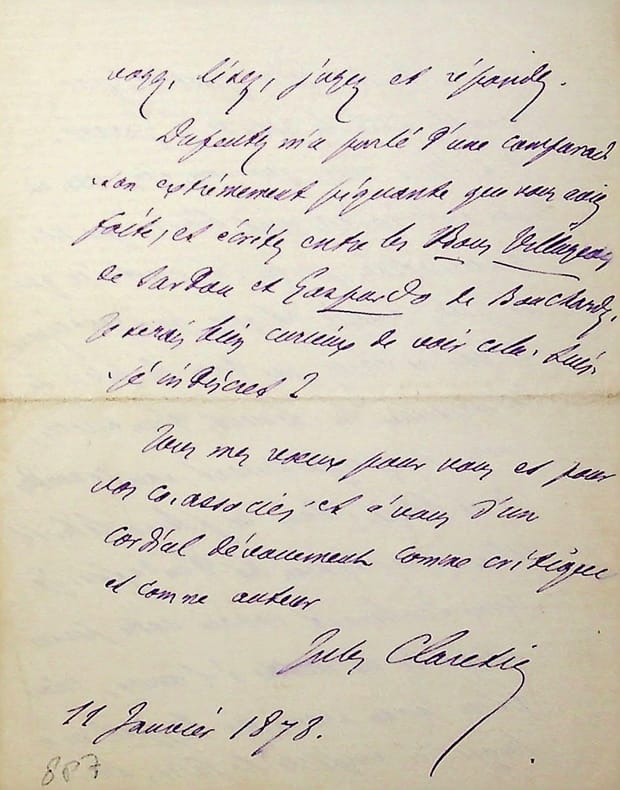 voyez, lisez, jugez et répondez.
Dufeuty m'a parlé d'une comparai-
son extrêmement piquante que vous aviez
faite, et écrite, entre les Bons Villageois
de Sardou et Gaspardo de Bouchardy.
Je serais bien curieux de voir cela. Suis-
-je indiscret ?
Tous mes vœux pour vous et pour
vos co-associés et à vous d'un
cordial dévouement comme critique
et comme auteur
Jules Claretie
11 Janvier 1878.
887